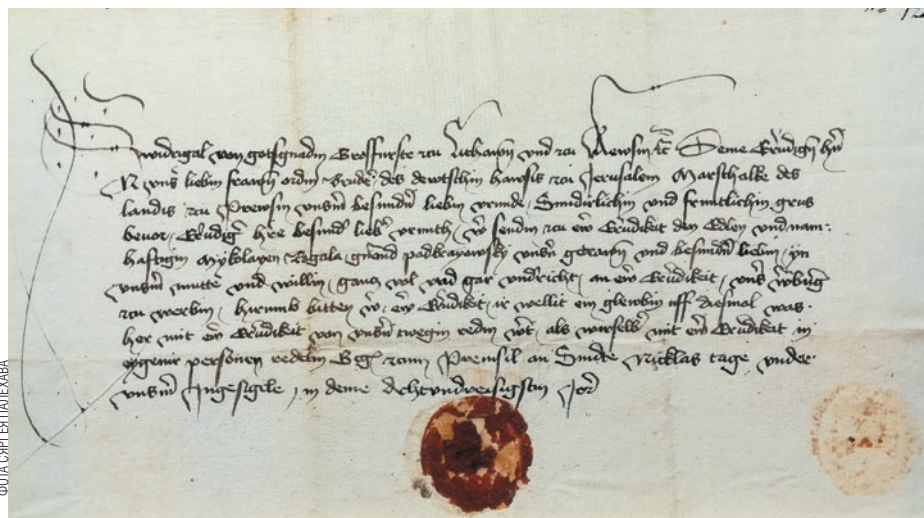 Swidrigal von gotsgnadin Grosfurste czu Litthawen und czu Rewsin etc Deme Erwirdigen hern
N unsir liebin frawen ordin Bruder des dewtschin hawsis czu Jerusalem Marschalke des
landis czu Prewsin unsirm besundirn liebin frunde Bruderlichin und fruntlichin grus
bevor Erwirdiger herre besunder liebir frunth wir sendin czu ewir Erwirdikeit den Edlen und nam-
haftigin Mykolayen genand unsirn getrawen und besundirn liebin yn
unsirm mutte und willin gancz wol und gar undirricht an ewir Erwirdikeit unsir
czu werbin hirumb bitten wir ewir Erwirdikeit ir wellit em glewbin uff diesmal was
her mit ewir Erwirdikeit von unsir wegin redin wirt als wir selbir mit ewir Erwirdikeit in
eygenir personen redetin czum Premsil an Sindte Nicklas tage under
unsirm Ingesigile in deme Jor
ФОТА СЯРГЕЯ ПАЛЕХАВА